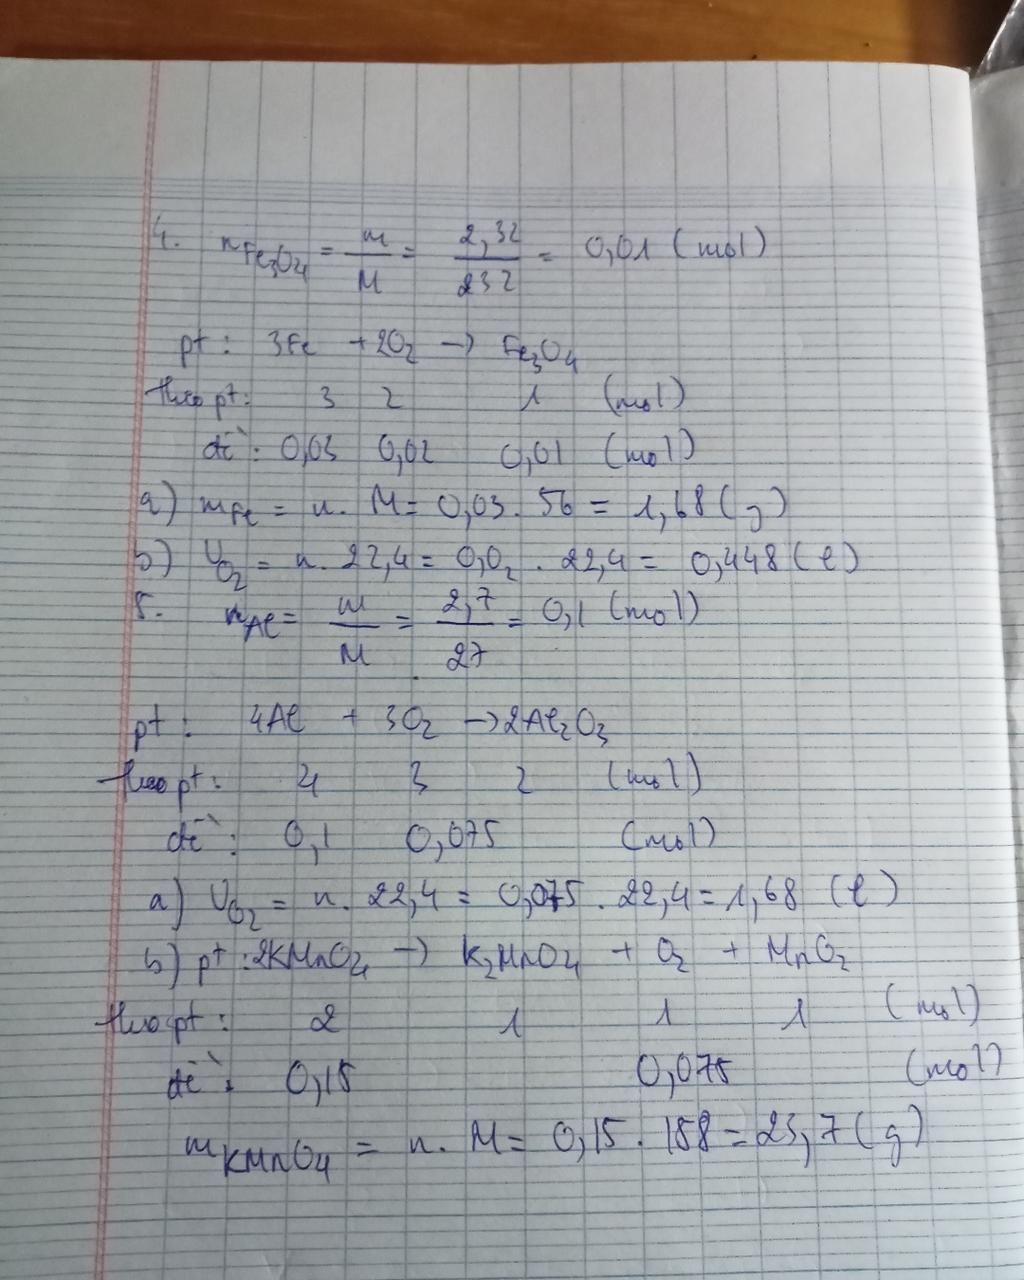 4. nFe3O4 = m/M = 2,32/232 = 0,01 (mol)
pt: 3Fe + 2O2 → Fe3O4
theo pt: 3 2 1 (mol)
đề: 0,03 0,02 0,01 (mol)
a) mFe = n. M = 0,03. 56 = 1,68 (g)
b) VO2 = n. 22,4 = 0,02 . 22,4 = 0,448 (l)
5. nAl = m/M = 2,7/27 = 0,1 (mol)
pt: 4Al + 3O2 → 2Al2O3
theo pt: 4 3 2 (mol)
đề: 0,1 0,075 (mol)
a) VO2 = n. 22,4 = 0,075 . 22,4 = 1,68 (l)
b) pt: 2KMnO4 → K2MnO4 + O2 + MnO2
theo pt: 2 1 1 1 (mol)
đề: 0,15 0,075 (mol)
mKMnO4 = n. M = 0,15. 158 = 23,7 (g)